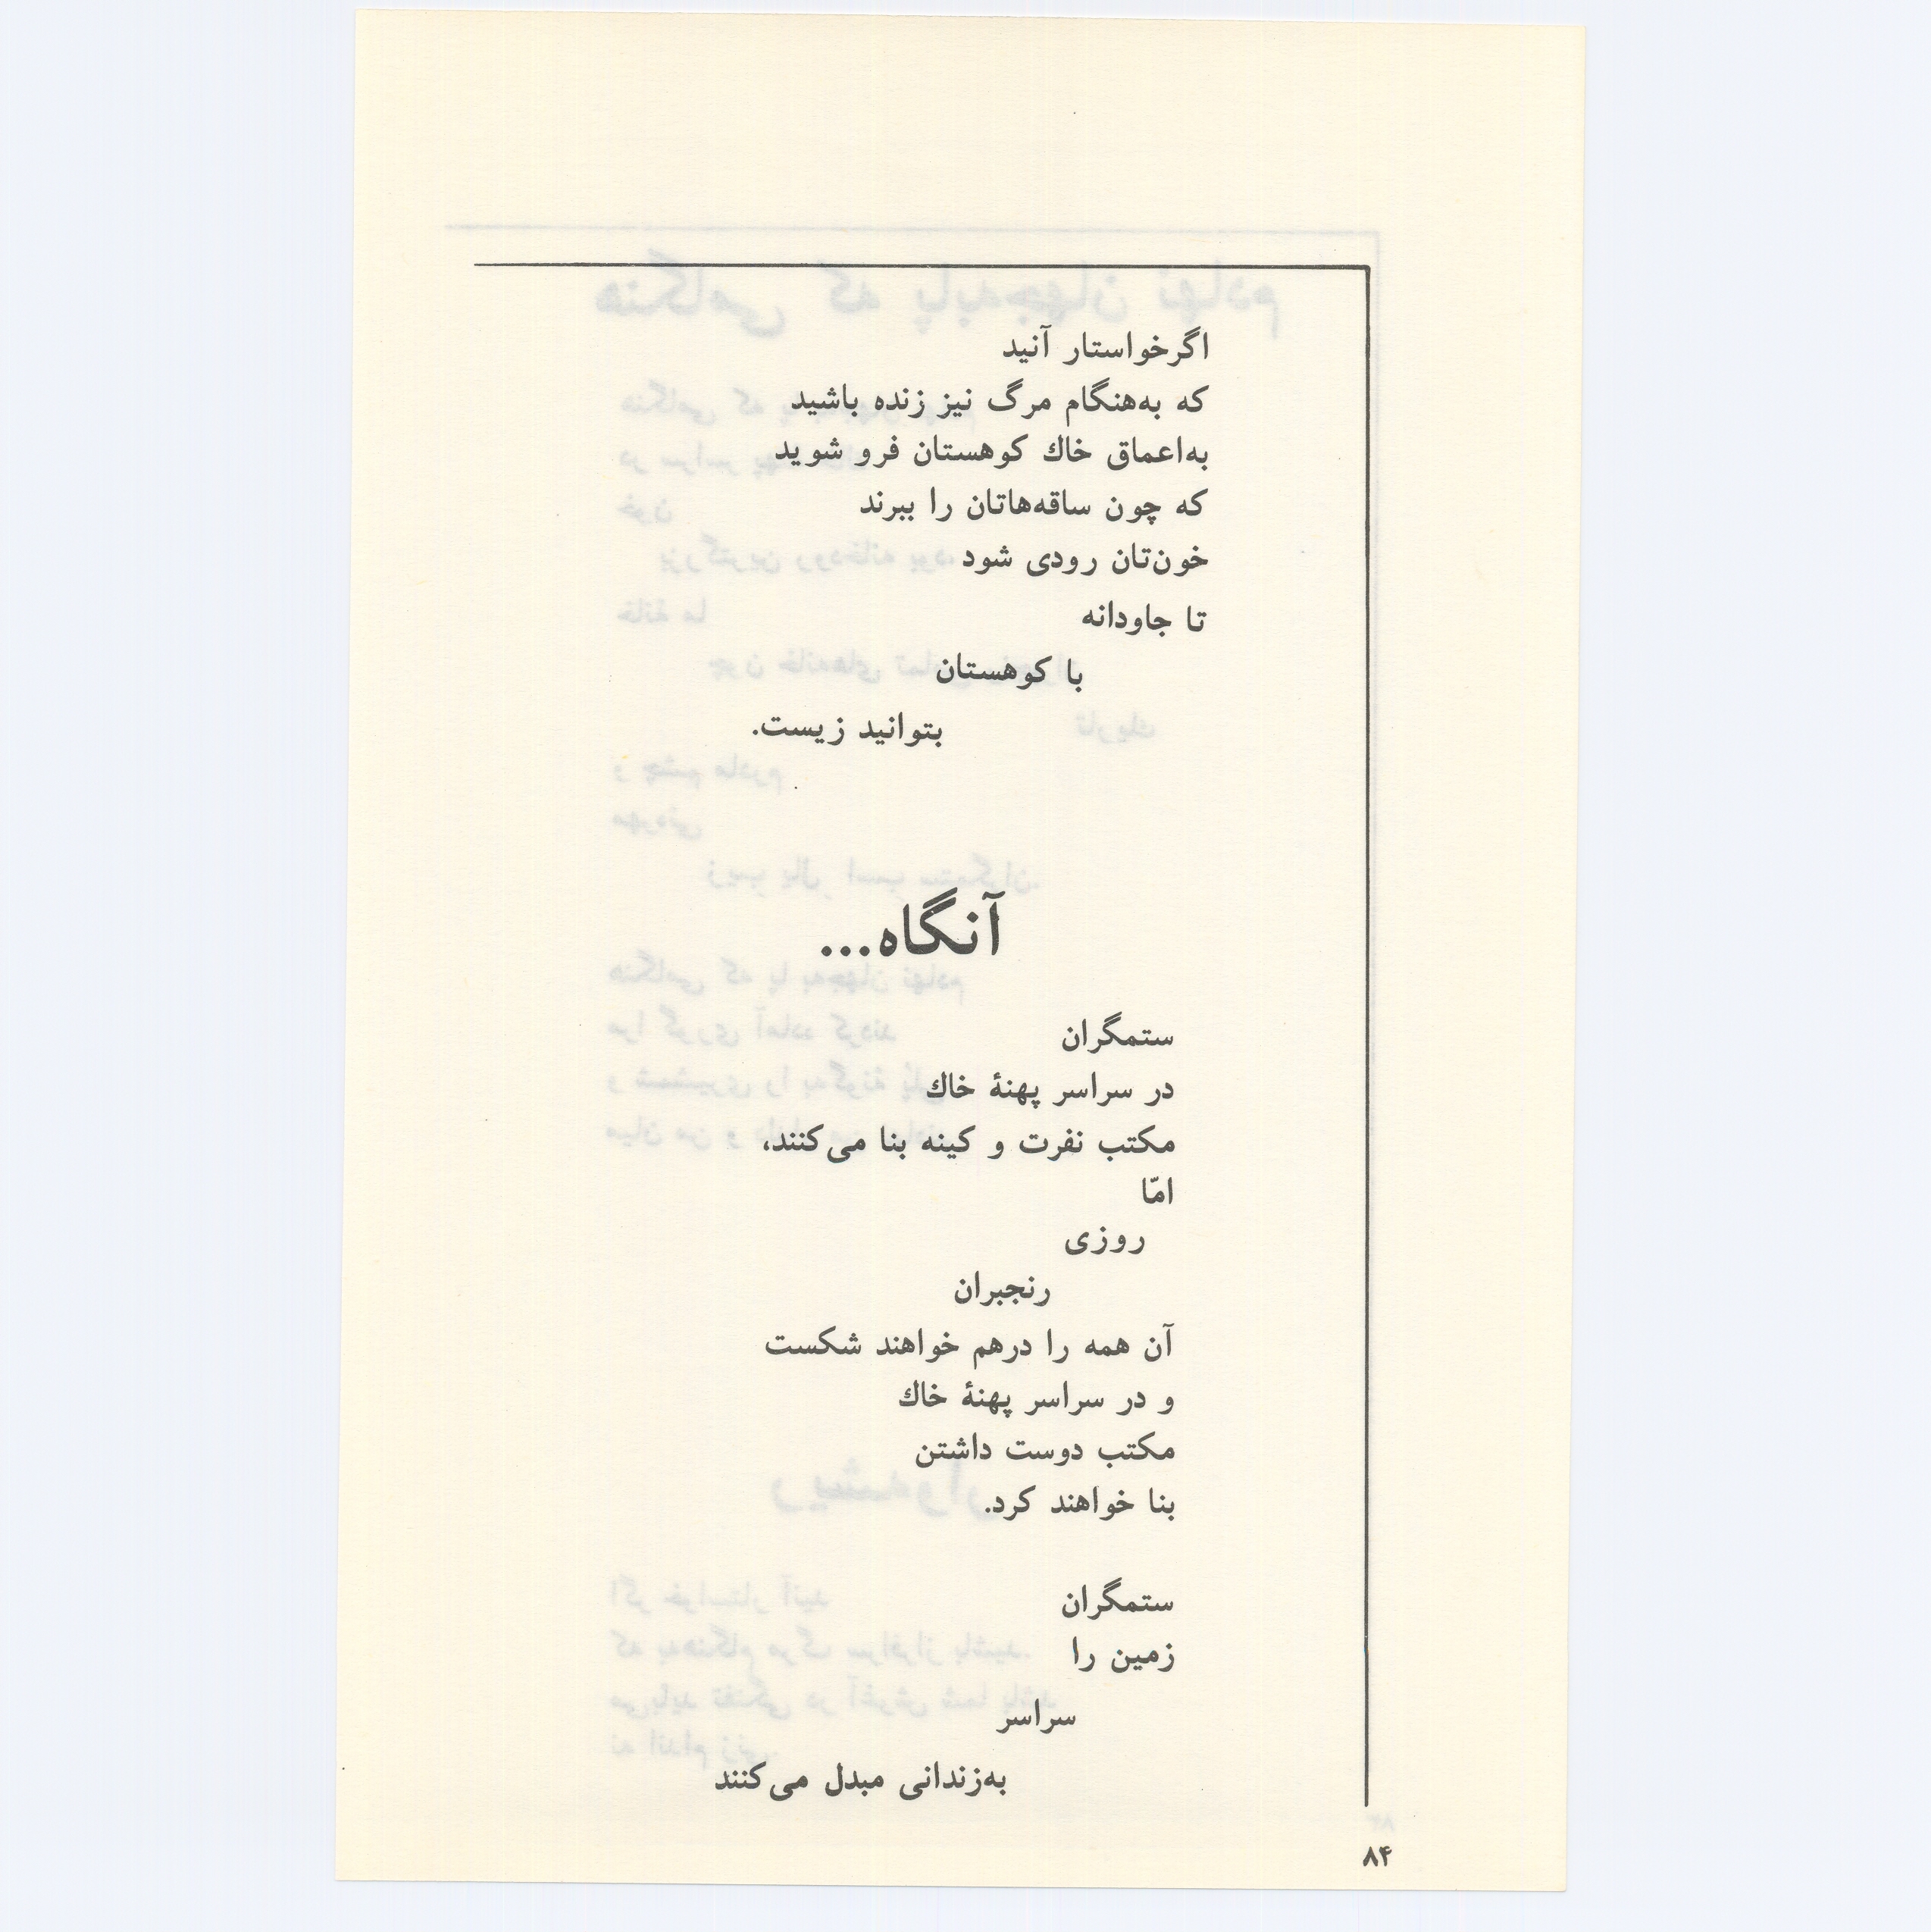 اگرخواستار آنید
که به‌هنگام مرگ نیز زنده باشید
به‌اعماق خاك کوهستان فرو شوید
که چون ساقه‌هاتان را ببرند
خون‌تان رودی شود
تا جاودانه
با کوهستان
بتوانید زیست.
آنگاه...
ستمگران
در سراسر پهنهٔ خاك
مکتب نفرت و کینه بنا می‌کنند،
امّا
روزی
رنجبران
آن همه را درهم خواهند شکست
و در سراسر پهنهٔ خاك
مکتب دوست داشتن
بنا خواهند کرد.
ستمگران
زمین را
سراسر
به‌زندانی مبدل می‌کنند
۸۴